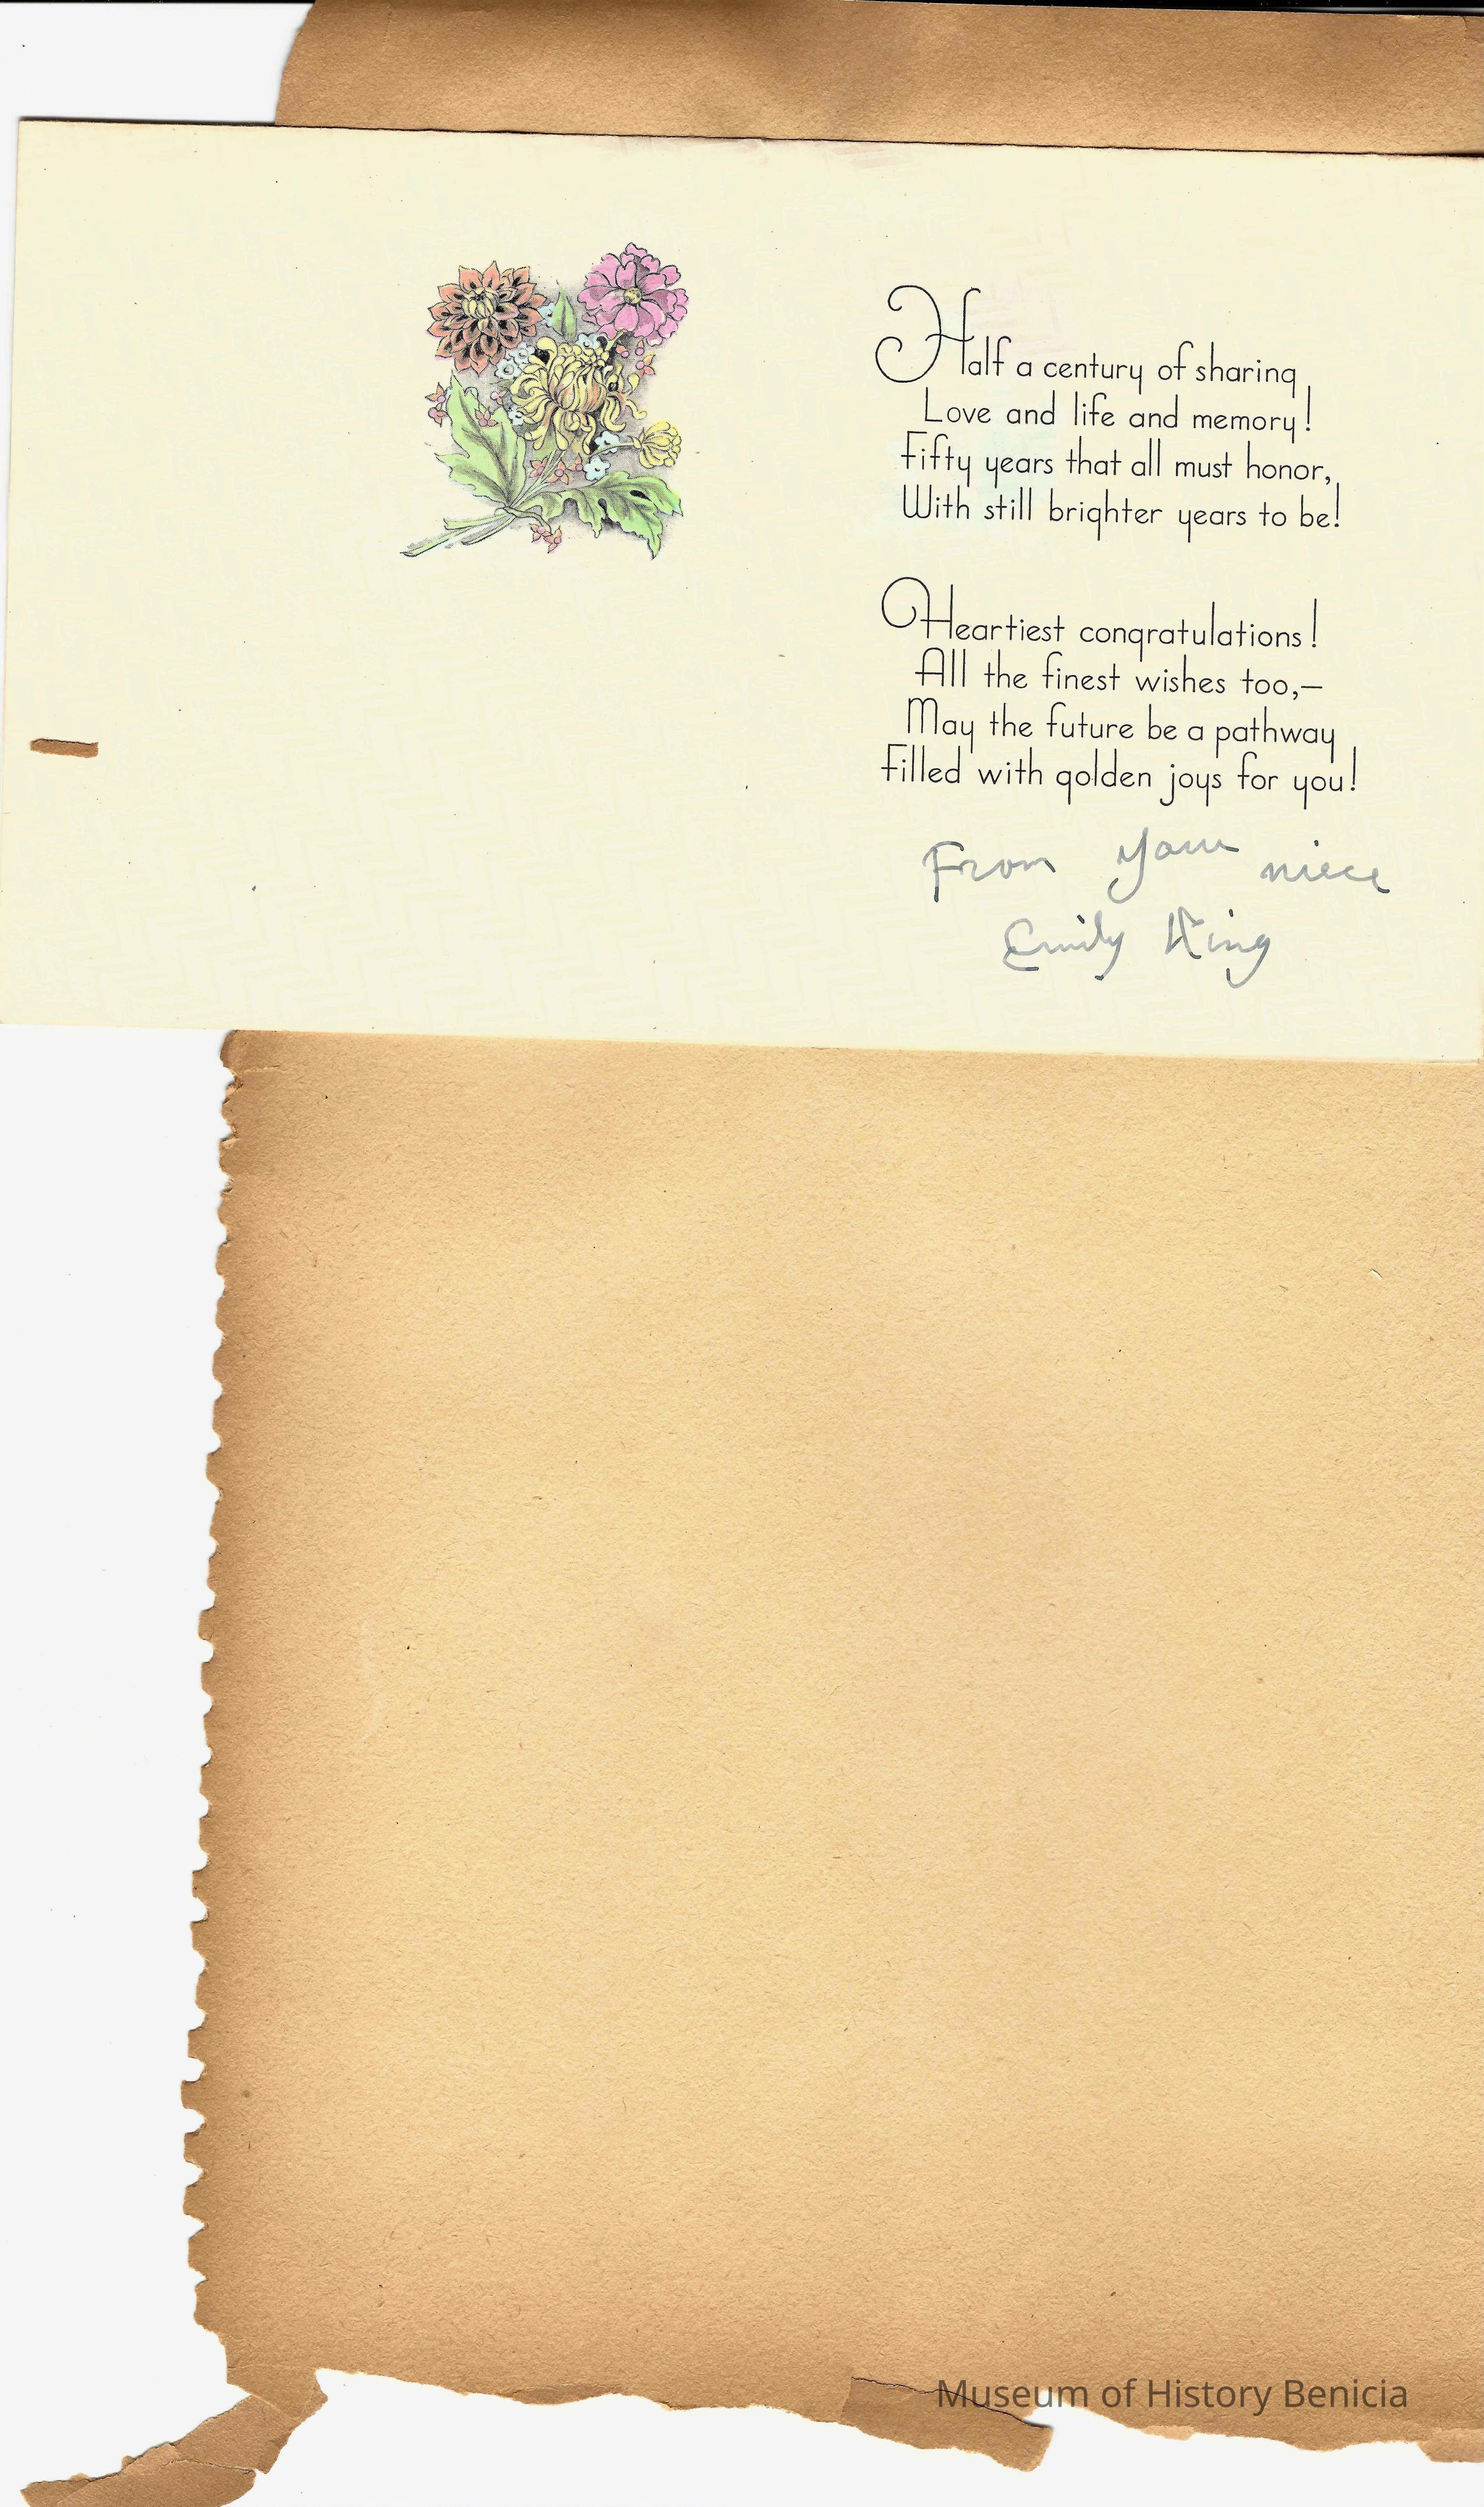 Half a century of sharing
Love and life and memory!
Fifty years that all must honor,
With still brighter years to be!
Heartiest congratulations!
All the finest wishes too,—
May the future be a pathway
Filled with golden joys for you!
From your niece
Emily King
Museum of History Benicia